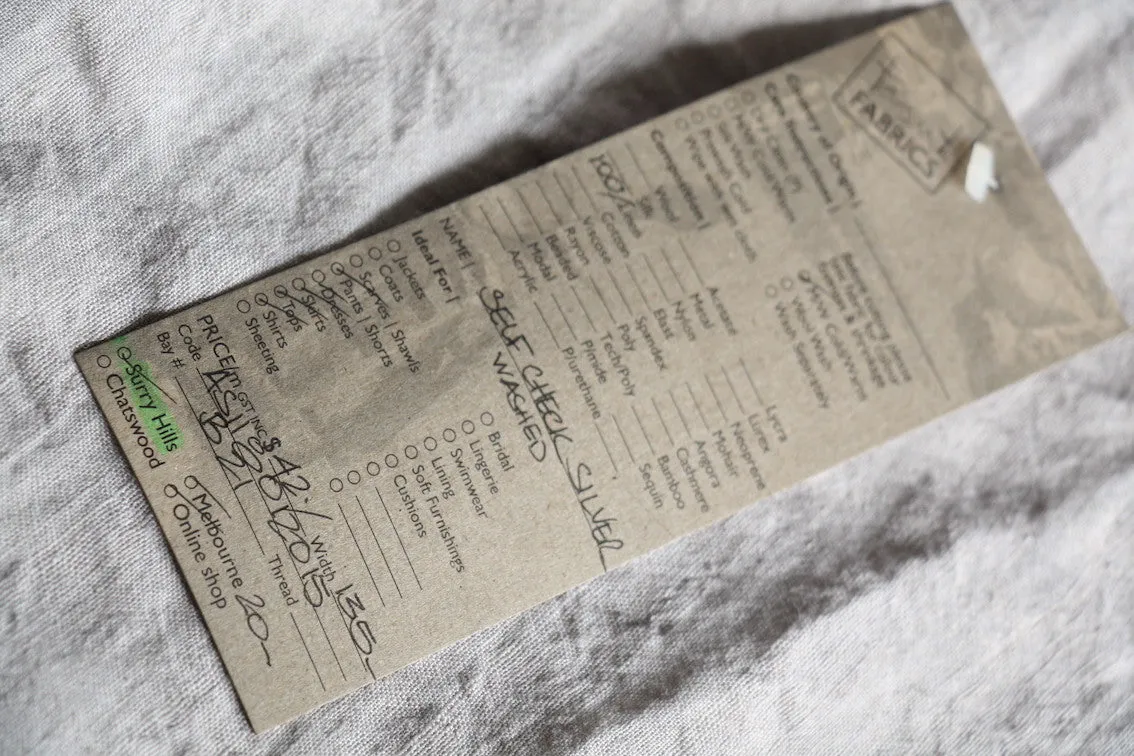 FABRICS
Country of Origin |
Care Requirement |
Dry Clean (P)
Mild/ Cool Wash
Silk Wash
Brush Cold
Wipe with wet cloth
Before cutting please
Warm Wash
Wool Wash
Wash Separately
Composition |
Wool
Silk
100% Linen
Cotton
Viscose
Rayon
Bonded
Modal
Acrylic
Acetate
Metal
Nylon
Elast
Spandex
Poly
Tech/Poly
Plurethane
Lycra
Lurex
Neoprene
Mohair
Angora
Cashmere
Bamboo
Sequin
NAME | SELF CHECK SILVER
WASHED
Ideal For |
Jackets
Coats
Scarves | Shawls
Pants | Shorts
Dresses
Skirts
Tops
Shirts
Sheeting
Bridal
Lingerie
Swimwear
Lining
Soft Furnishings
Cushions
PRICE/m GST INC $ Width 135-
Code
Bay # B21 Thread
Surry Hills
Chatswood
Melbourne 20-
Online shop